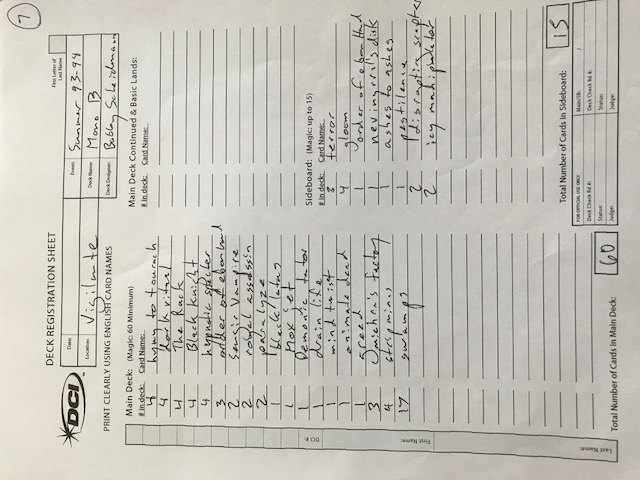 7
DECK REGISTRATION SHEET
First Letter of
Last Name
DCI
Date:
Event: Summer 93-94
Location: Vigilante
Deck Name: Mono B
Deck Designer: Bobby
PRINT CLEARLY USING ENGLISH CARD NAMES
Main Deck: (Magic: 60 Minimum)
# in deck: Card Name:
4 hymn to tourach
4 dark ritual
4 The Rack
4 Black Knight
4 hypnotic specter
3 order of ebon hand
2 Sengir Vampire
2 royal assassin
2 paralyze
1 black lotus
1 Mox jet
1 Demonic tutor
1 drain life
1 mind twist
1 animate dead
1 greed
3 mishra's factory
4 stripmines
17 swamps
Total Number of Cards in Main Deck: 60
DCI #:
First Name:
Last Name:
Main Deck Continued & Basic Lands:
# in deck: Card Name:
Sideboard: (Magic: up to 15)
# in deck: Card Name:
3 terror
4 gloom
1 order of ebon Hand
1 nevinyrral's disk
1 ashes to ashes
1 pestilence
2 disrupting scepter
2 icy manipulator
Total Number of Cards in Sideboard: 15
FOR OFFICIAL USE ONLY
Main/SB: /
Deck Check Rd #: Deck Check Rd #:
Status: Status:
Judge: Judge: